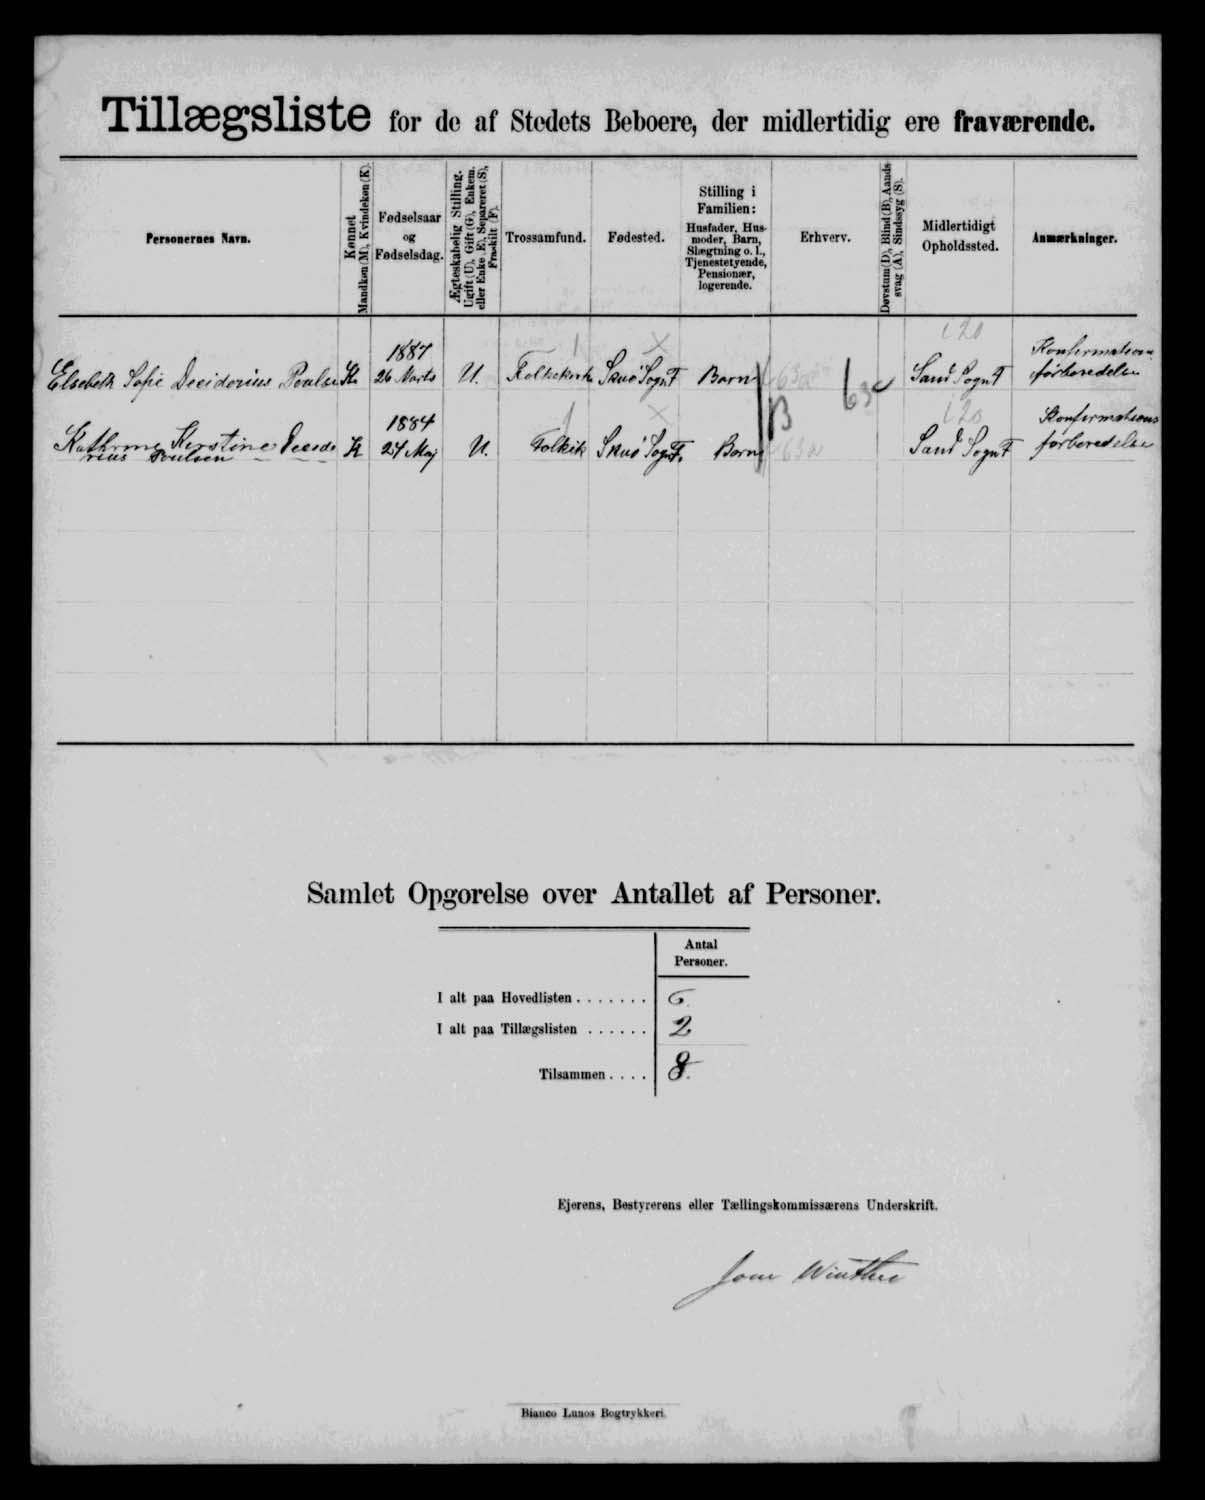 Tillægsliste for de af Stedets Beboere, der midlertidig ere fraværende.
Personernes Navn.
Kønnet
Mandkøn (M), Kvindekøn (K).
Fødselsaar
og
Fødselsdag.
Ægteskabelig Stilling.
Ugift (U), Gift (G), Enkem.
eller Enke (E), Separeret (S),
Fraskilt (F).
Trossamfund.
Fødested.
Stilling i
Familien:
Husfader, Hus-
moder, Barn,
Slægtning o. l.,
Tjenestetyende,
Pensionær,
logerende.
Erhverv.
Døvstum (D), Blind (B), Aands-
svag (A), Sindssyg (S).
Midlertidigt
Opholdssted.
Anmærkninger.
Elsebeth Sofie Decidorius Poulsen K 1887 26 Marts U. Folkekirk Skuø Sogn F Barn Sand Sogn F Konfirmations forberedelse
63c
B
Kathrine Kirstine Decido
rius Poulsen K 1884 24 Maj U. Folkik Skuø Sogn F. Barn Sand Sogn F Konfirmations forberedelse
Samlet Opgørelse over Antallet af Personer.
Antal
Personer.
I alt paa Hovedlisten . . . . . . . 6
I alt paa Tillægslisten . . . . . . 2
Tilsammen . . . . 8.
Ejerens, Bestyrerens eller Tællingskommissærens Underskrift.
Joen Winther
Bianco Lunos Bogtrykkeri.